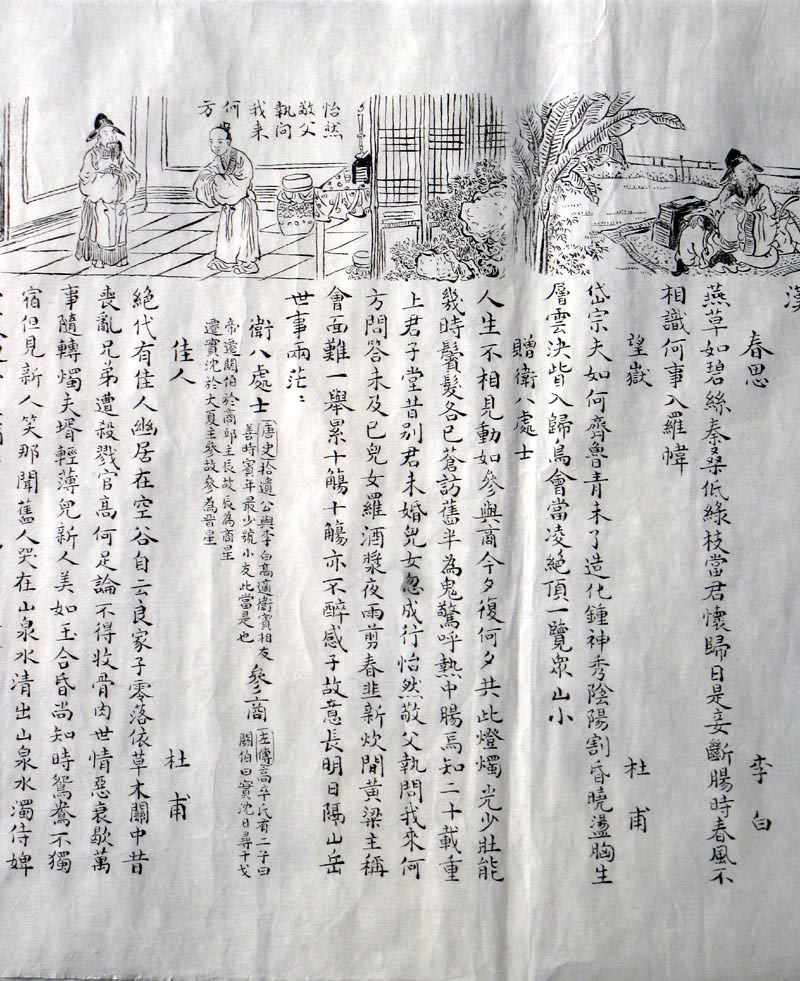 怡然
敬父
執問
我来
何
方
漢
春思
李白
燕草如碧絲秦桑低綠枝當君懷歸日是妾斷腸時春風不
相識何事入羅幃
望嶽
杜甫
岱宗夫如何齊魯青未了造化鍾神秀陰陽割昏曉盪胸生
層雲決眥入歸鳥會當凌絕頂一覽眾山小
贈衛八處士
人生不相見動如參與商今夕復何夕共此燈燭光少壯能
幾時鬢髮各已蒼訪舊半為鬼驚呼熱中腸焉知二十載重
上君子堂昔別君未婚兒女忽成行怡然敬父執問我來何
方問答未及已兒女羅酒漿夜雨剪春韭新炊間黃粱主稱
會面難一舉累十觴十觴亦不醉感子故意長明日隔山岳
世事兩茫〻
衛八處士
唐史拾遺公與李白高適衛賓相友
善時賓年最少號小友此當是也
參商
左傳高辛氏有二子曰
閼伯曰實沈日尋干戈
帝遷閼伯於商邱主辰故辰為商星
遷實沈於大夏主參故參為晉星
佳人
杜甫
絕代有佳人幽居在空谷自云良家子零落依草木關中昔
喪亂兄弟遭殺戮官高何足論不得收骨肉世情惡衰歇萬
事隨轉燭夫壻輕薄兒新人美如玉合昏尚知時鴛鴦不獨
宿但見新人笑那聞舊人哭在山泉水清出山泉水濁侍婢